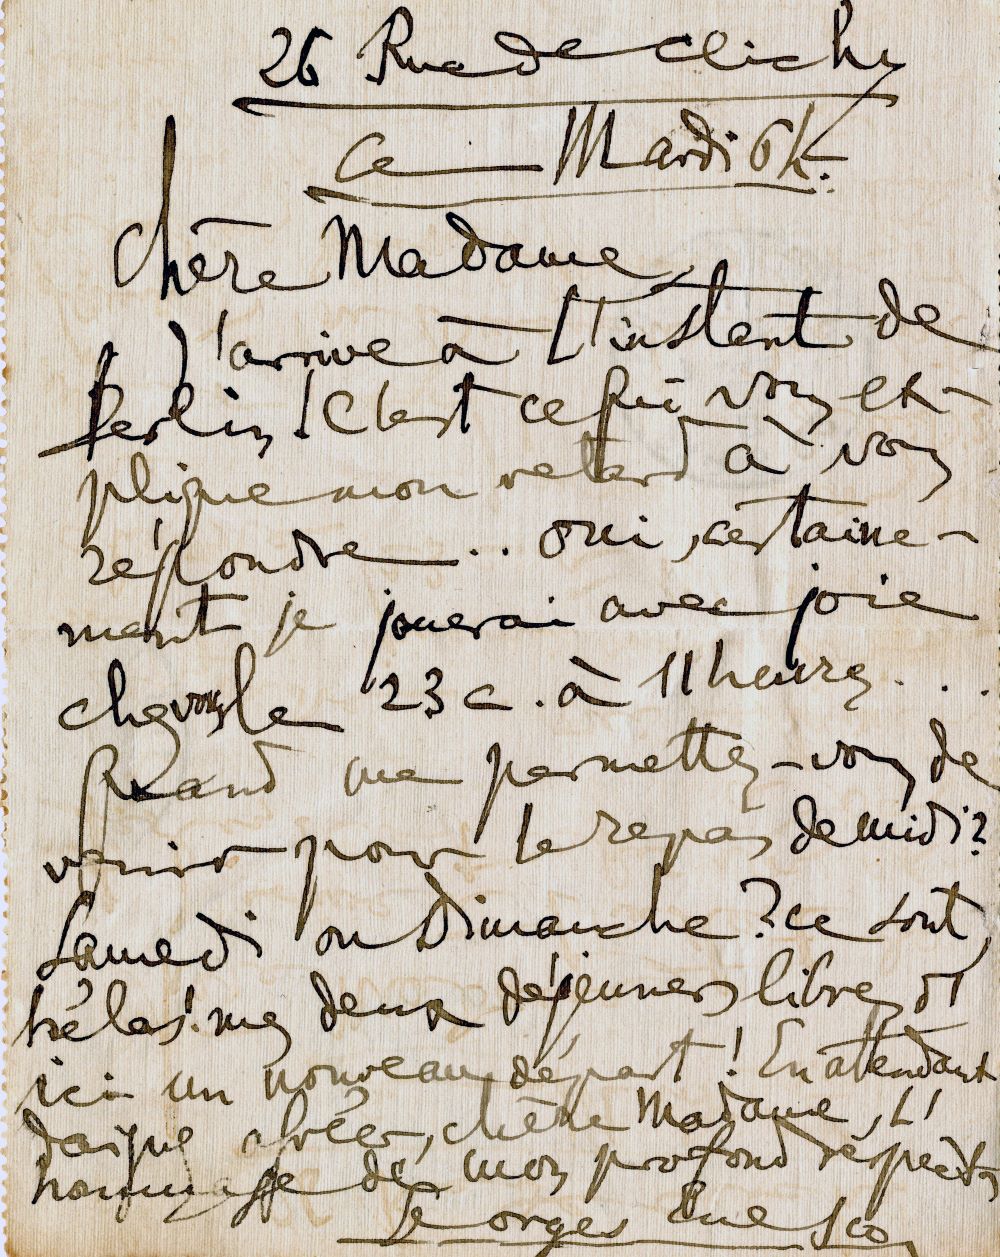 26 Rue de Clichy
Ce Mardi 6h.
Chère Madame,
J'arrive à L'instant de
Berlin! C'est ce qui vous ex-
plique mon retard à vous
répondre .. oui, certaine-
ment je jouerai avec joie
chez vous le 23 c. à 11 heures...
Quand me permettez-vous de
venir pour le repas de midi?
Samedi ou Dimanche? ce sont,
hélas! mes deux déjeuners libres d'
ici un nouveau départ! En attendant
daignez agréer, chère Madame, L'
hommage de mon profond respect
Georges Enesco